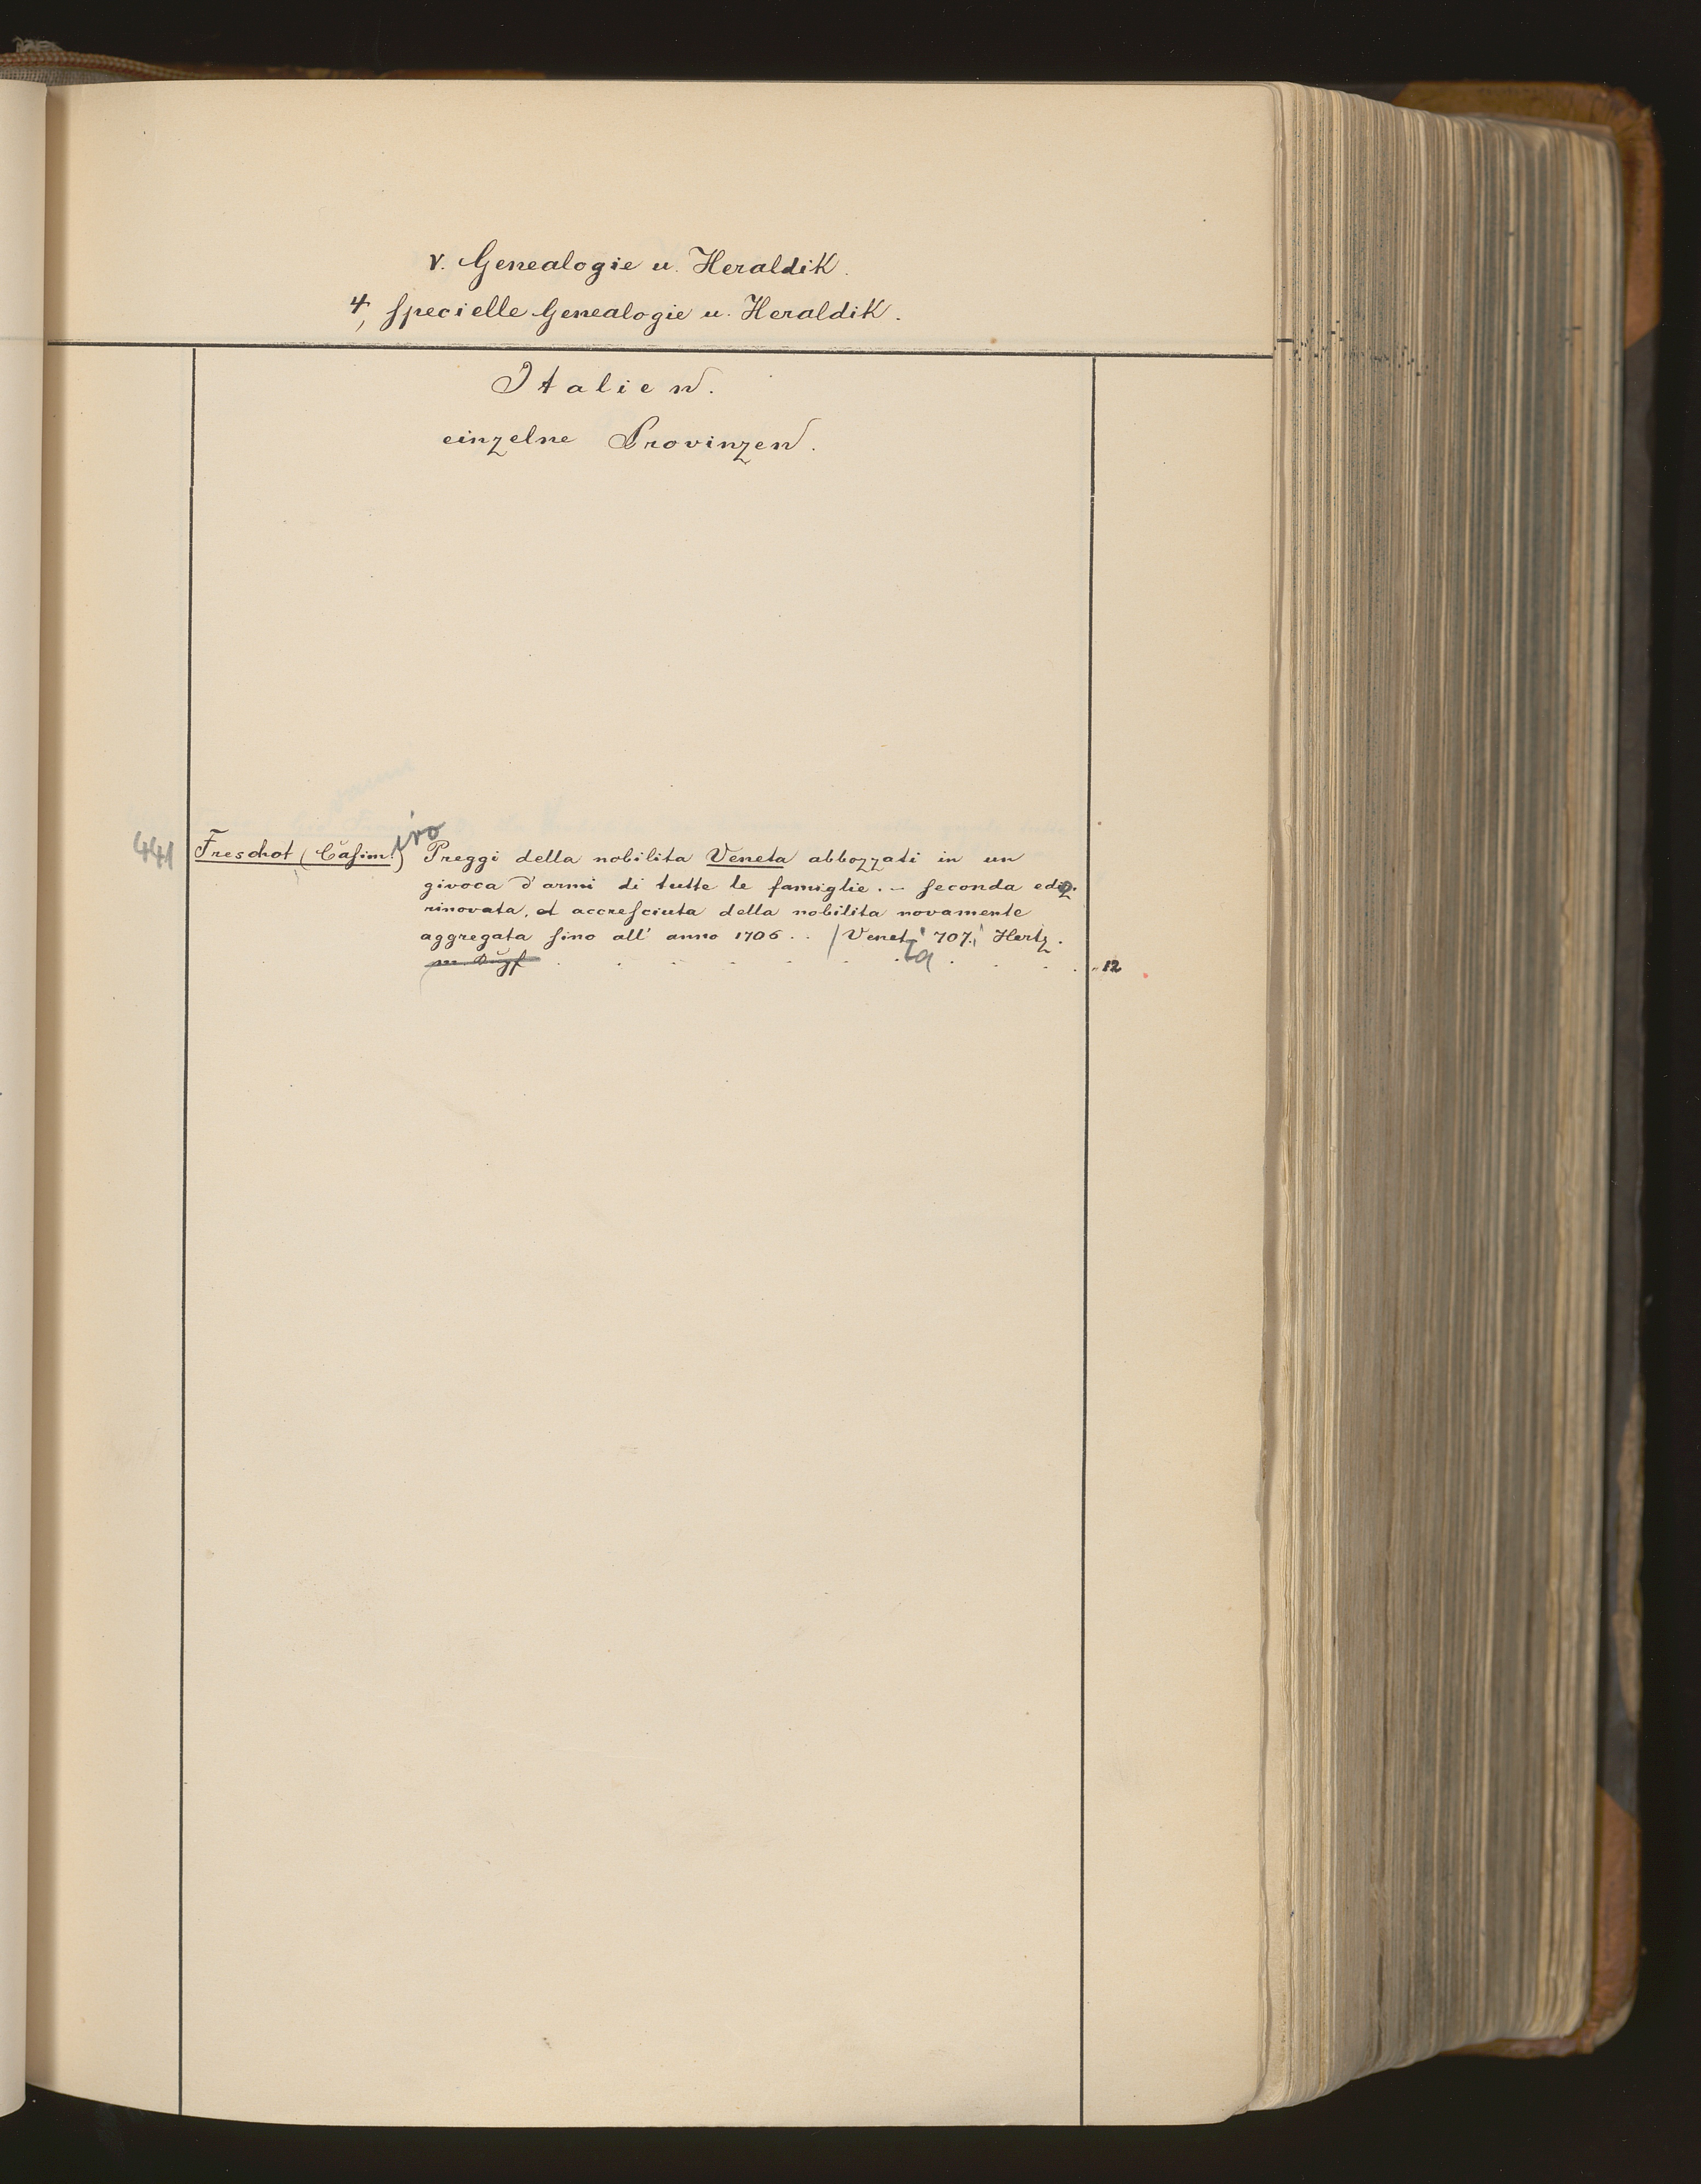 V. Genealogie u. Heraldik.
4, specielle Genealogie u. Heraldik.
Italien.
einzelne Provinzen.
441 Freschot (Casimiro) Preggi della nobilita Veneta abbozzati in un
givoca d'armi di tutte le famiglie. – seconda ediz.
rinovata, et accresciuta della nobilita novamente
aggregata sino all' anno 1706 . . (Venetia 707.) Hertz.
12